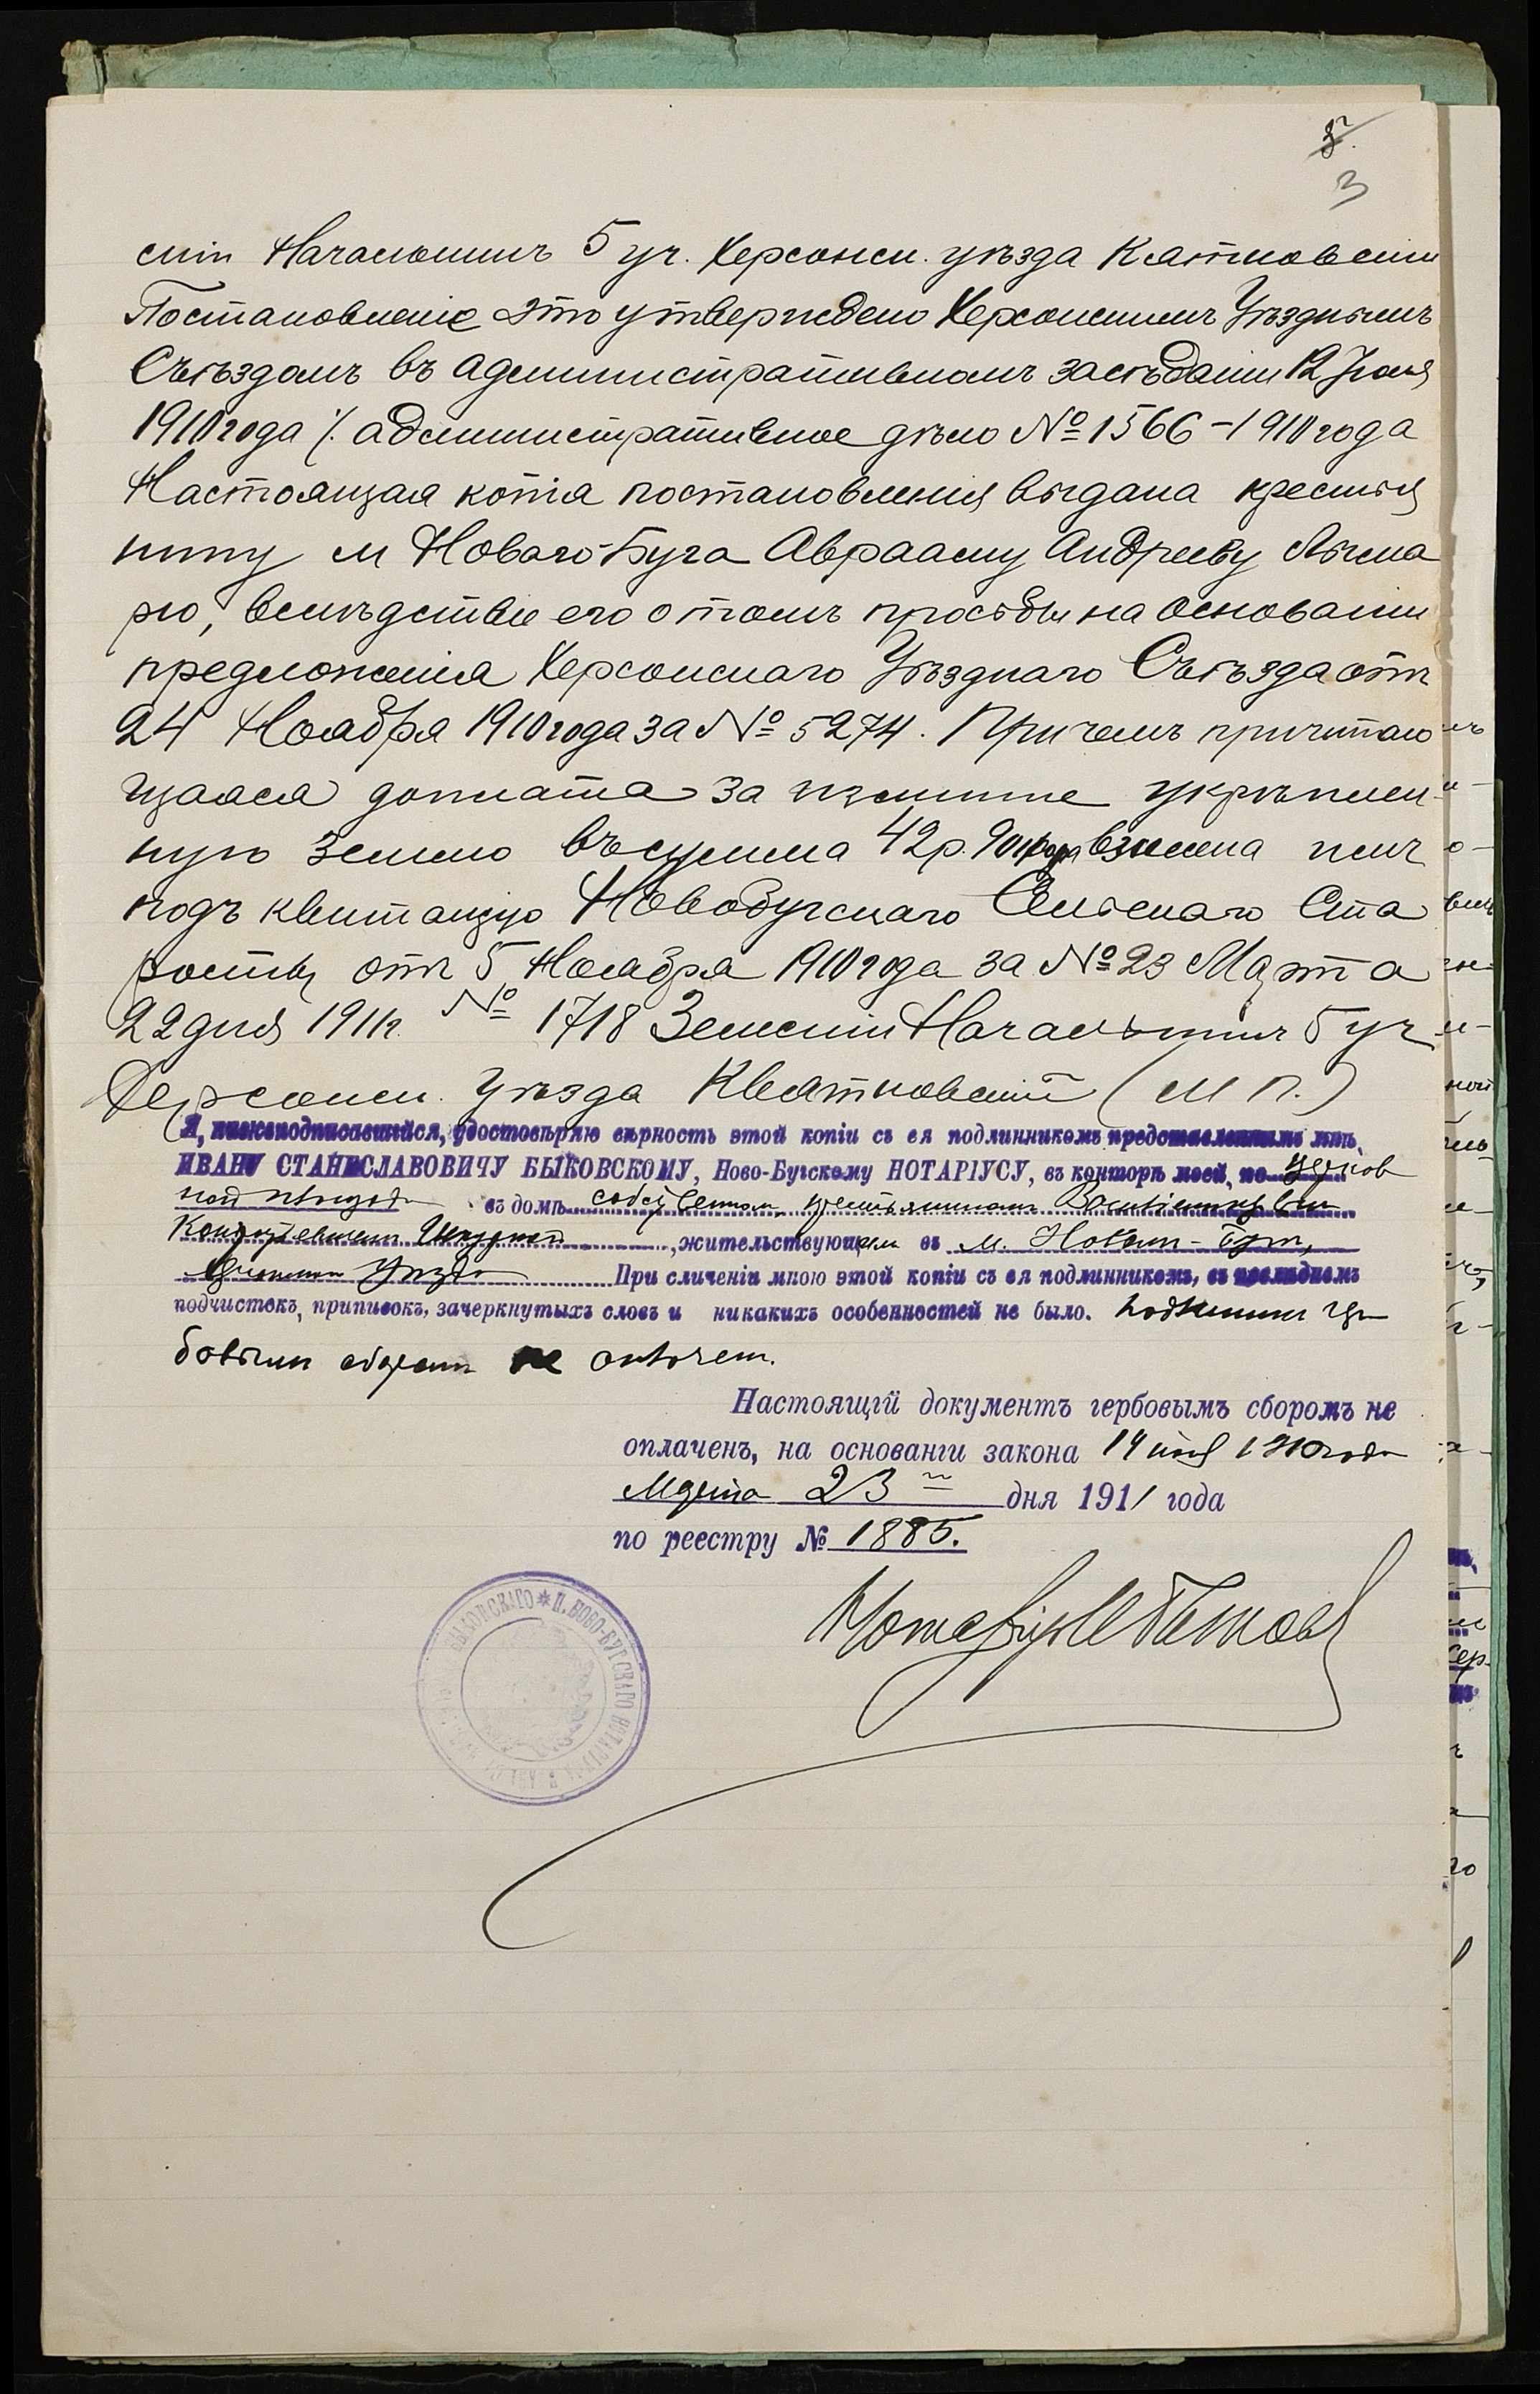 3
скій Начальникъ 5 уч. Херсонск. уѣзда Квятковскій
Постановленіе это утверждено Херсонскимъ Уѣзднымъ
Съѣздомъ въ административномъ засѣданіи 12 Іюля
1910 года /. административное дѣло № 1566 - 1910 года
Настоящая копія постановленія выдана крестья
нину м Новаго-Буга Аврааму Андрееву
рю, вслѣдствіе его о томъ просьбы на основаніи
предложенія Херсонскаго Уѣзднаго Съѣзда отъ
24 Ноября 1910 года за № 5274. Причемъ причитаю
щаяся доплата за излишне укрѣплен
ную землю въ сумма 42 р. взнесена имъ
подъ квитанцію Новобугскаго Сельскаго Ста
росты отъ 5 Ноября 1910 года за № 23 Марта
22 дня 1911 г. № 1718 Земскій Начальникъ 5 уч
Херсонск. уѣзда Квятковскій (М П.)
Я, нижеподписавшійся, удостовѣряю вѣрность этой копіи съ ея подлинникомъ представленнымъ мнѣ,
ИВАНУ СТАНИСЛАВОВИЧУ БЫКОВСКОМУ, Ново-Бугскому НОТАРІУСУ, въ конторѣ моей, по Церков
ной площади въ домѣ собственномъ, крестьяниномъ
жительствующимъ въ м. Новомъ-Бугѣ,
уѣзда При сличеніи мною этой копіи съ ея подлинникомъ, въ послѣднемъ
подчистокъ, приписокъ, зачеркнутыхъ словъ и никакихъ особенностей не было. Подлинникъ гер
бовымъ сборомъ не оплаченъ.
Настоящій документъ гербовымъ сборомъ не
оплаченъ, на основаніи закона 14 іюня 1910 года
Марта 23 дня 1911 года
по реестру № 1885.
Нотаріусъ И Быков
БЫКОВСКАГО * П. НОВО-БУГСКАГО НОТАРІУСА